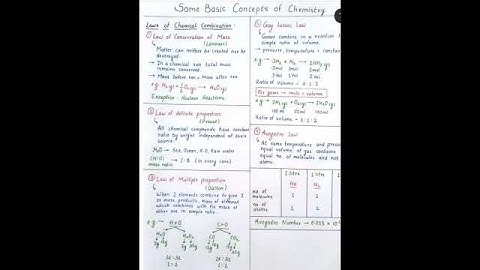 Some Basic Concepts of Chemistry
Laws of Chemical Combination:
① Law of Conservation of Mass
(Lavoisier)
Matter can neither be created nor be
destroyed.
→ In a chemical rxn total mass
remains conserved
→ Mass before rxn = Mass after rxn
e.g. H₂(g) + ½O₂(g) → H₂O(g)
Exception - Nuclear Reactions
② Law of definite proportion
(Proust)
All chemical compounds have constant
ratio by weight independent of
source
H₂O → Sea, Ocean, Rain water
(H:O) → 1:8 (in every case)
mass ratio
③ Law of Multiple proportion
(Dalton)
When 2 elements combine to give 2
or more products, mass of different
which combines with fix mass of
other are in simple ratio.
e.g. → H+O C+O
H₂O H₂O₂ CO CO₂
2g 16g 2g 32g 12g 16g 12g 32g
16:32 16:32
1:2 1:2
④ Gay Lussac Law
Gases combine in a reaction
simple ratio of volume
→ pressure, temperature = constant
e.g → 3H₂ + N₂ → 2NH₃
3mol 1mol 2mol
Ratio of volume = 3:1:2
For gases → mole ∝ volume
e.g → 2H₂ + O₂(g) → 2H₂O
100ml 50ml 100ml
Ratio of volume = 2:1:2
⑤ Avogadro Law
At same temperature and pressure
equal volume of gas contains
equal no. of molecules and not
atoms.
1 litre 1 litre
He N₂
no. of 1 1
molecules
no. of 1 2
atoms
Avogadro Number → 6.023 × 10